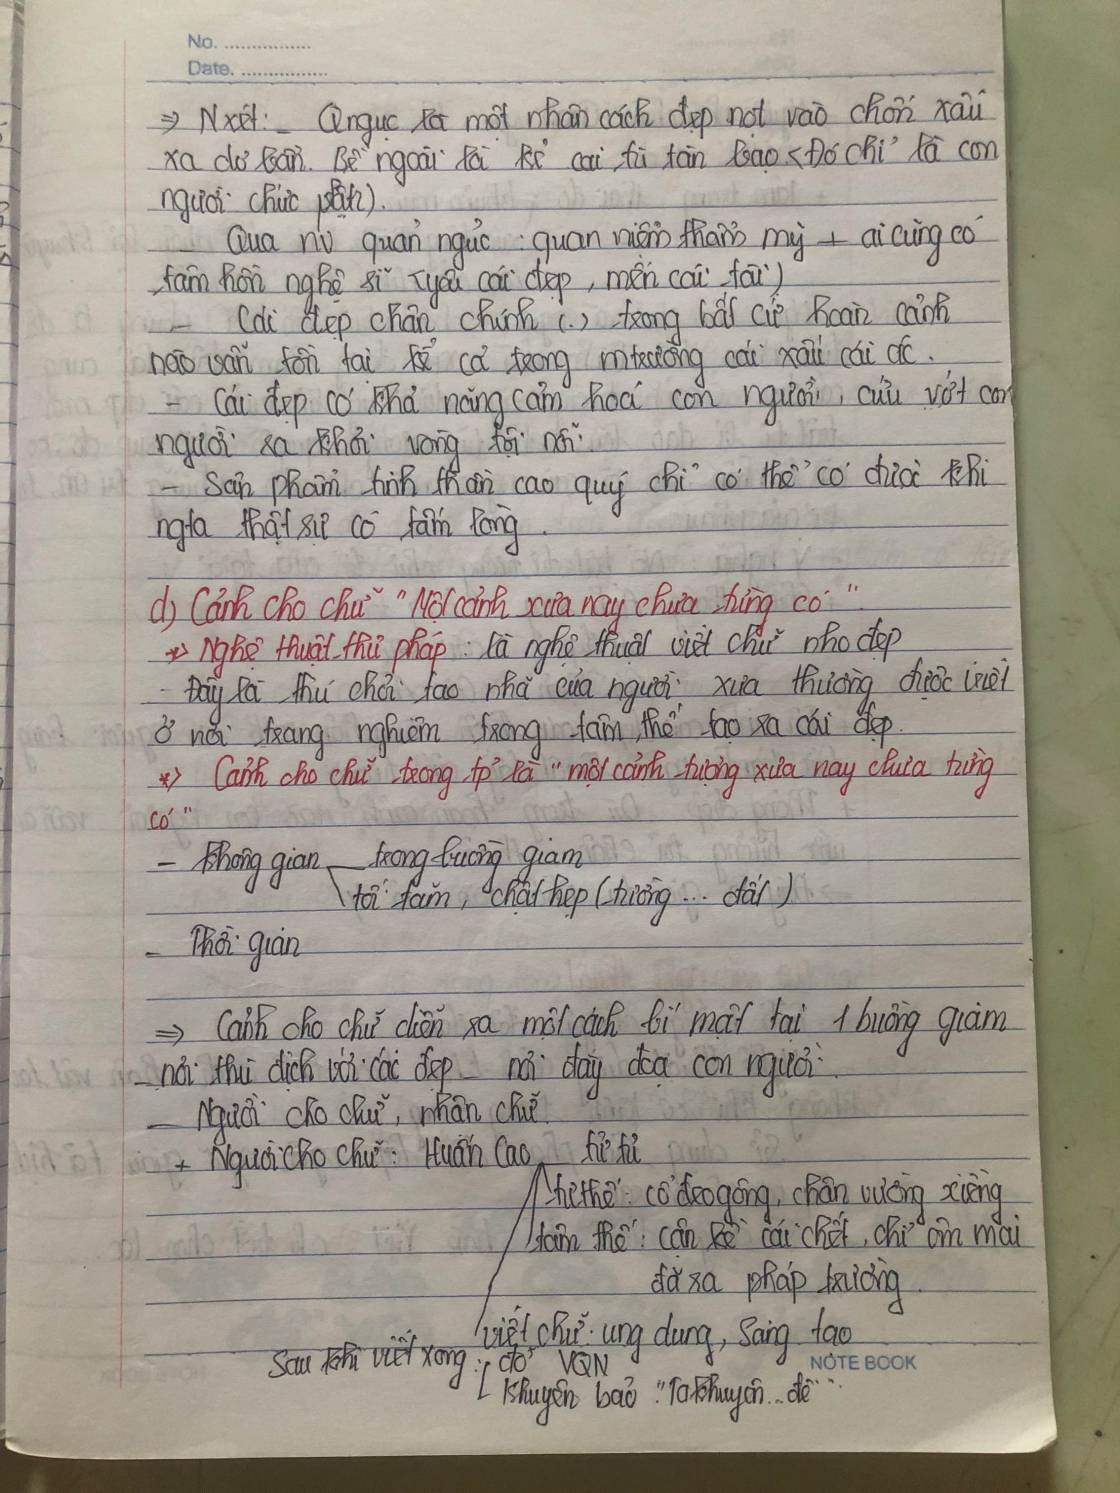 No. ................
Date. ................
=> Nxét: - Qngục là một nhân cách đẹp nơi vào chốn xấu
xa dơ bẩn. Bề ngoài là kẻ cai tù tàn bạo <Đó chỉ là con
người chức phận).
- Qua nv quản ngục : quan niệm thẩm mỹ + ai cũng có
tâm hồn nghệ sĩ (yêu cái đẹp, mến cái tài)
- Cái đẹp chân chính (.) trong bất cứ hoàn cảnh
nào vẫn tồn tại kể cả trong mtrường cái xấu cái ác.
- Cái đẹp có khả năng cảm hoá con người, cứu vớt con
người ra khỏi vòng tội nỗi
- Sản phẩm tinh thần cao quý chỉ có thể có được khi
ngta thật sự có tấm lòng.
d) Cảnh cho chữ "Một cảnh xưa nay chưa từng có".
*> Nghệ thuật thư pháp : là nghệ thuật viết chữ nho đẹp
- Đây là thú chơi tao nhã của người xưa thường được viết
ở nơi trang nghiêm trong tâm thế tạo ra cái đẹp.
*> Cảnh cho chữ trong tp là "một cảnh tượng xưa nay chưa từng
có"
- Không gian trong buồng giam
tối tăm, chật hẹp (tường ... đất)
- Thời gian
=> Cảnh cho chữ diễn ra một cách bí mật tại 1 buồng giam
- nơi thù địch với cái đẹp - nơi đày đoạ con người.
- Người cho chữ, nhận chữ
+ Người cho chữ : Huấn Cao tử tù
tư thế : cổ đeo gông, chân vướng xiềng
tâm thế : cận kề cái chết, chỉ ôn mai
đã ra pháp trường.
viết chữ : ung dung, sáng tạo
Sau khi viết xong : đỡ VQN
NOTE BOOK
khuyên bảo "Ta khuyên...đề"